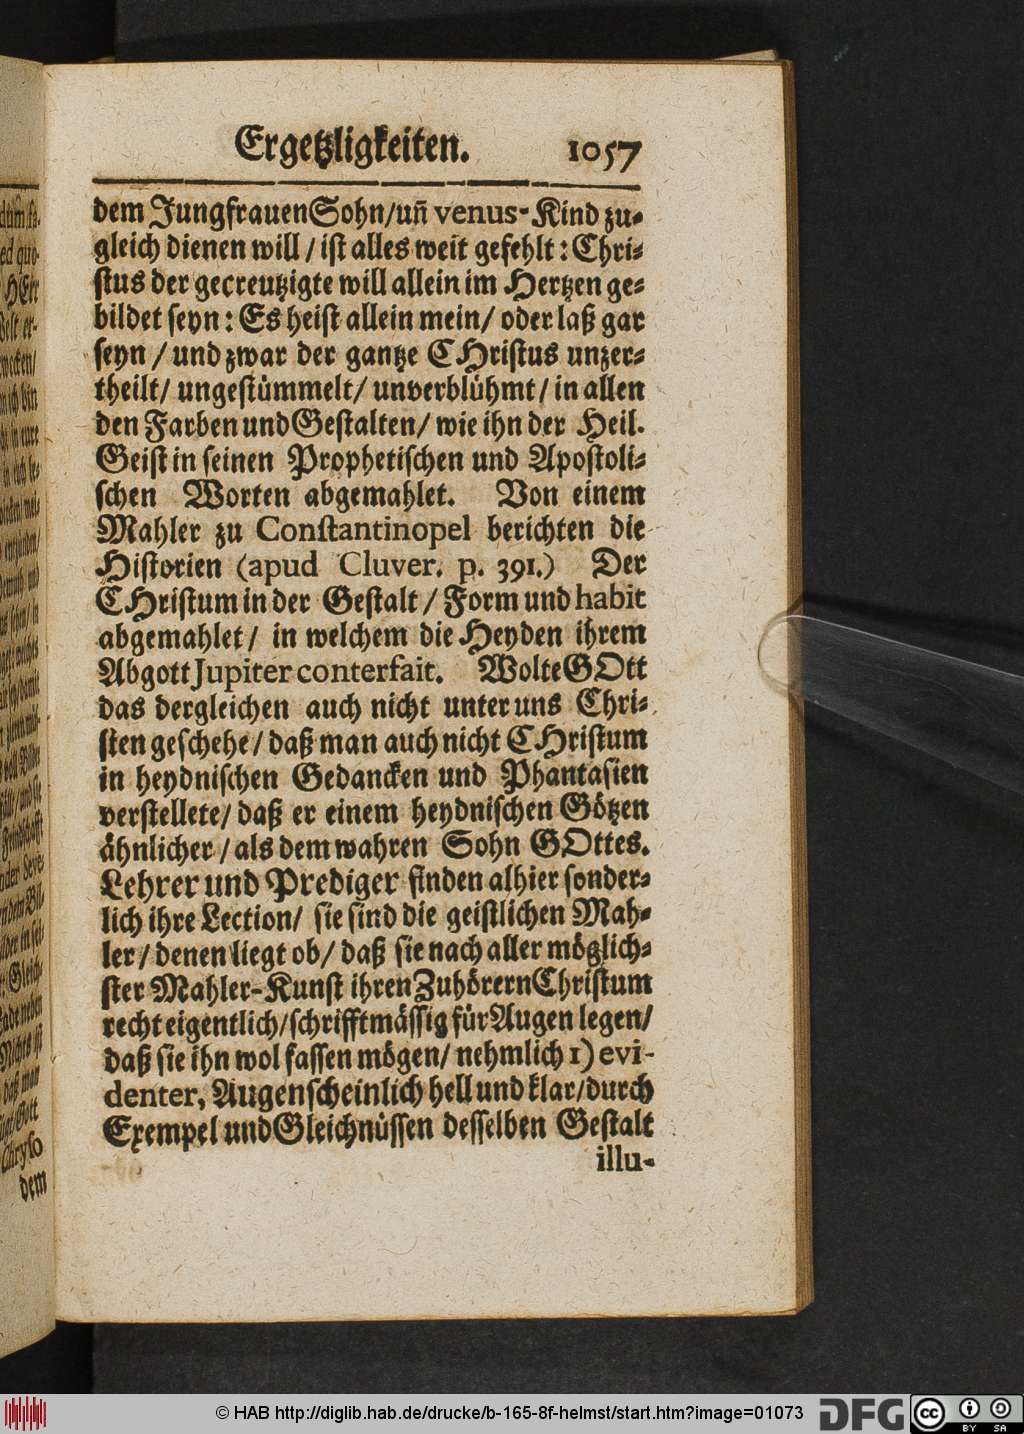 Ergetzligkeiten. 1057
dem Jungfrauen Sohn/uñ venus-Kind zu-
gleich dienen will / ist alles weit gefehlt: Chri-
stus der gecreutzigte will allein im Hertzen ge-
bildet seyn: Es heist allein mein/ oder laß gar
seyn / und zwar der gantze CHristus unzer-
theilt/ ungestümmelt/ unverblühmt/ in allen
den Farben und Gestalten/ wie ihn der Heil.
Geist in seinen Prophetischen und Apostoli-
schen Worten abgemahlet. Von einem
Mahler zu Constantinopel berichten die
Historien (apud Cluver. p. 391.) Der
CHristum in der Gestalt / Form und habit
abgemahlet/ in welchem die Heyden ihrem
Abgott Jupiter conterfait. Wolte GOtt
das dergleichen auch nicht unter uns Chri-
sten geschehe/ daß man auch nicht CHristum
in heydnischen Gedancken und Phantasien
verstellete/ daß er einem heydnischen Götzen
ähnlicher / als dem wahren Sohn GOttes.
Lehrer und Prediger finden alhier sonder-
lich ihre Lection/ sie sind die geistlichen Mah-
ler / denen liegt ob/ daß sie nach aller möglich-
ster Mahler-Kunst ihren Zuhörern Christum
recht eigentlich/schrifftmässig für Augen legen/
daß sie ihn wol fassen mögen/ nehmlich 1) evi-
denter, Augenscheinlich hell und klar/durch
Exempel und Gleichnüssen desselben Gestalt
illu-
© HAB http://diglib.hab.de/drucke/b-165-8f-helmst/start.htm?image=01073
DFG
cc BY SA